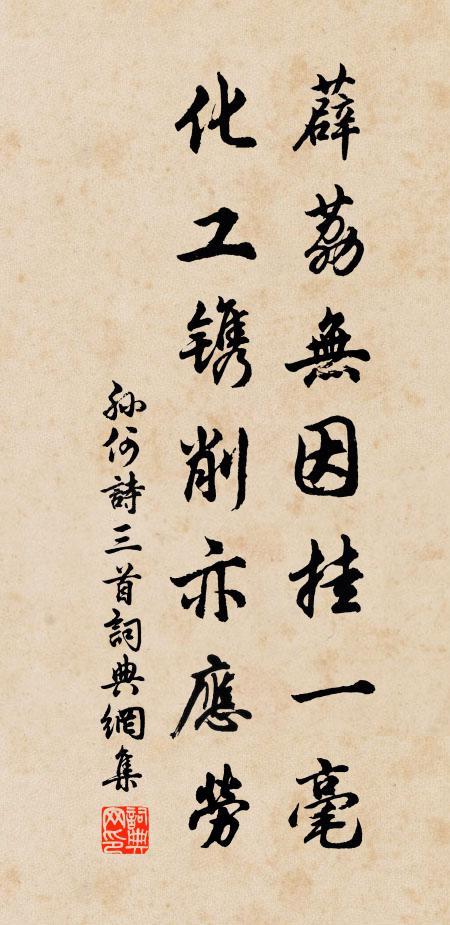 薜荔無因挂一毫
化工鐫削亦應勞
孫何詩三首詞典網集
詞典網印